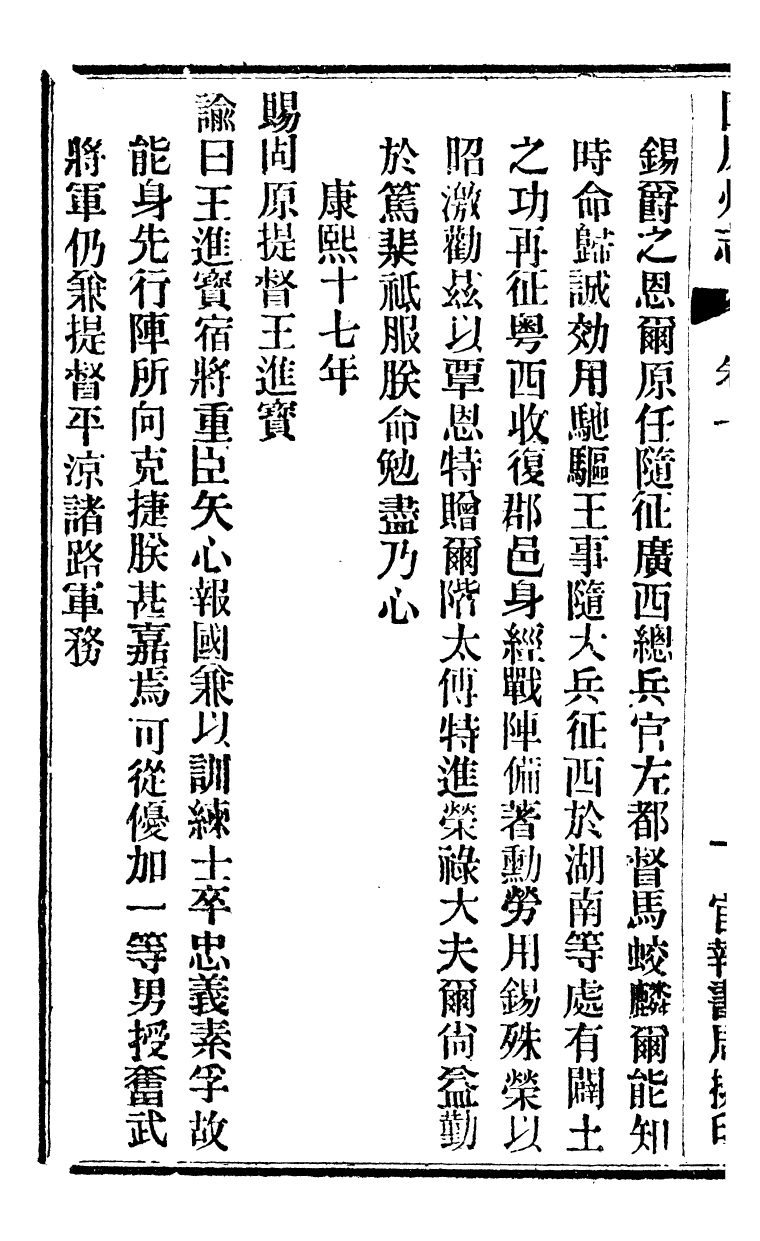 錫爵之恩爾原任隨征廣西總兵官左都督馬蛟麟爾能知
時命歸誠効用馳驅王事隨大兵征西於湖南等處有闢土
之功再征粵西收復郡邑身經戰陣備著勳勞用錫殊榮以
昭激勸茲以覃恩特贈爾階太傅特進榮祿大夫爾尙益勤
於篤棐祗服朕命勉盡乃心
康熙十七年
賜固原提督王進寳
諭曰王進寳宿將重臣矢心報國兼以訓練士卒忠義素孚故
能身先行陣所向克捷朕甚嘉焉可從優加一等男授奮武
將軍仍兼提督平涼諸路軍務